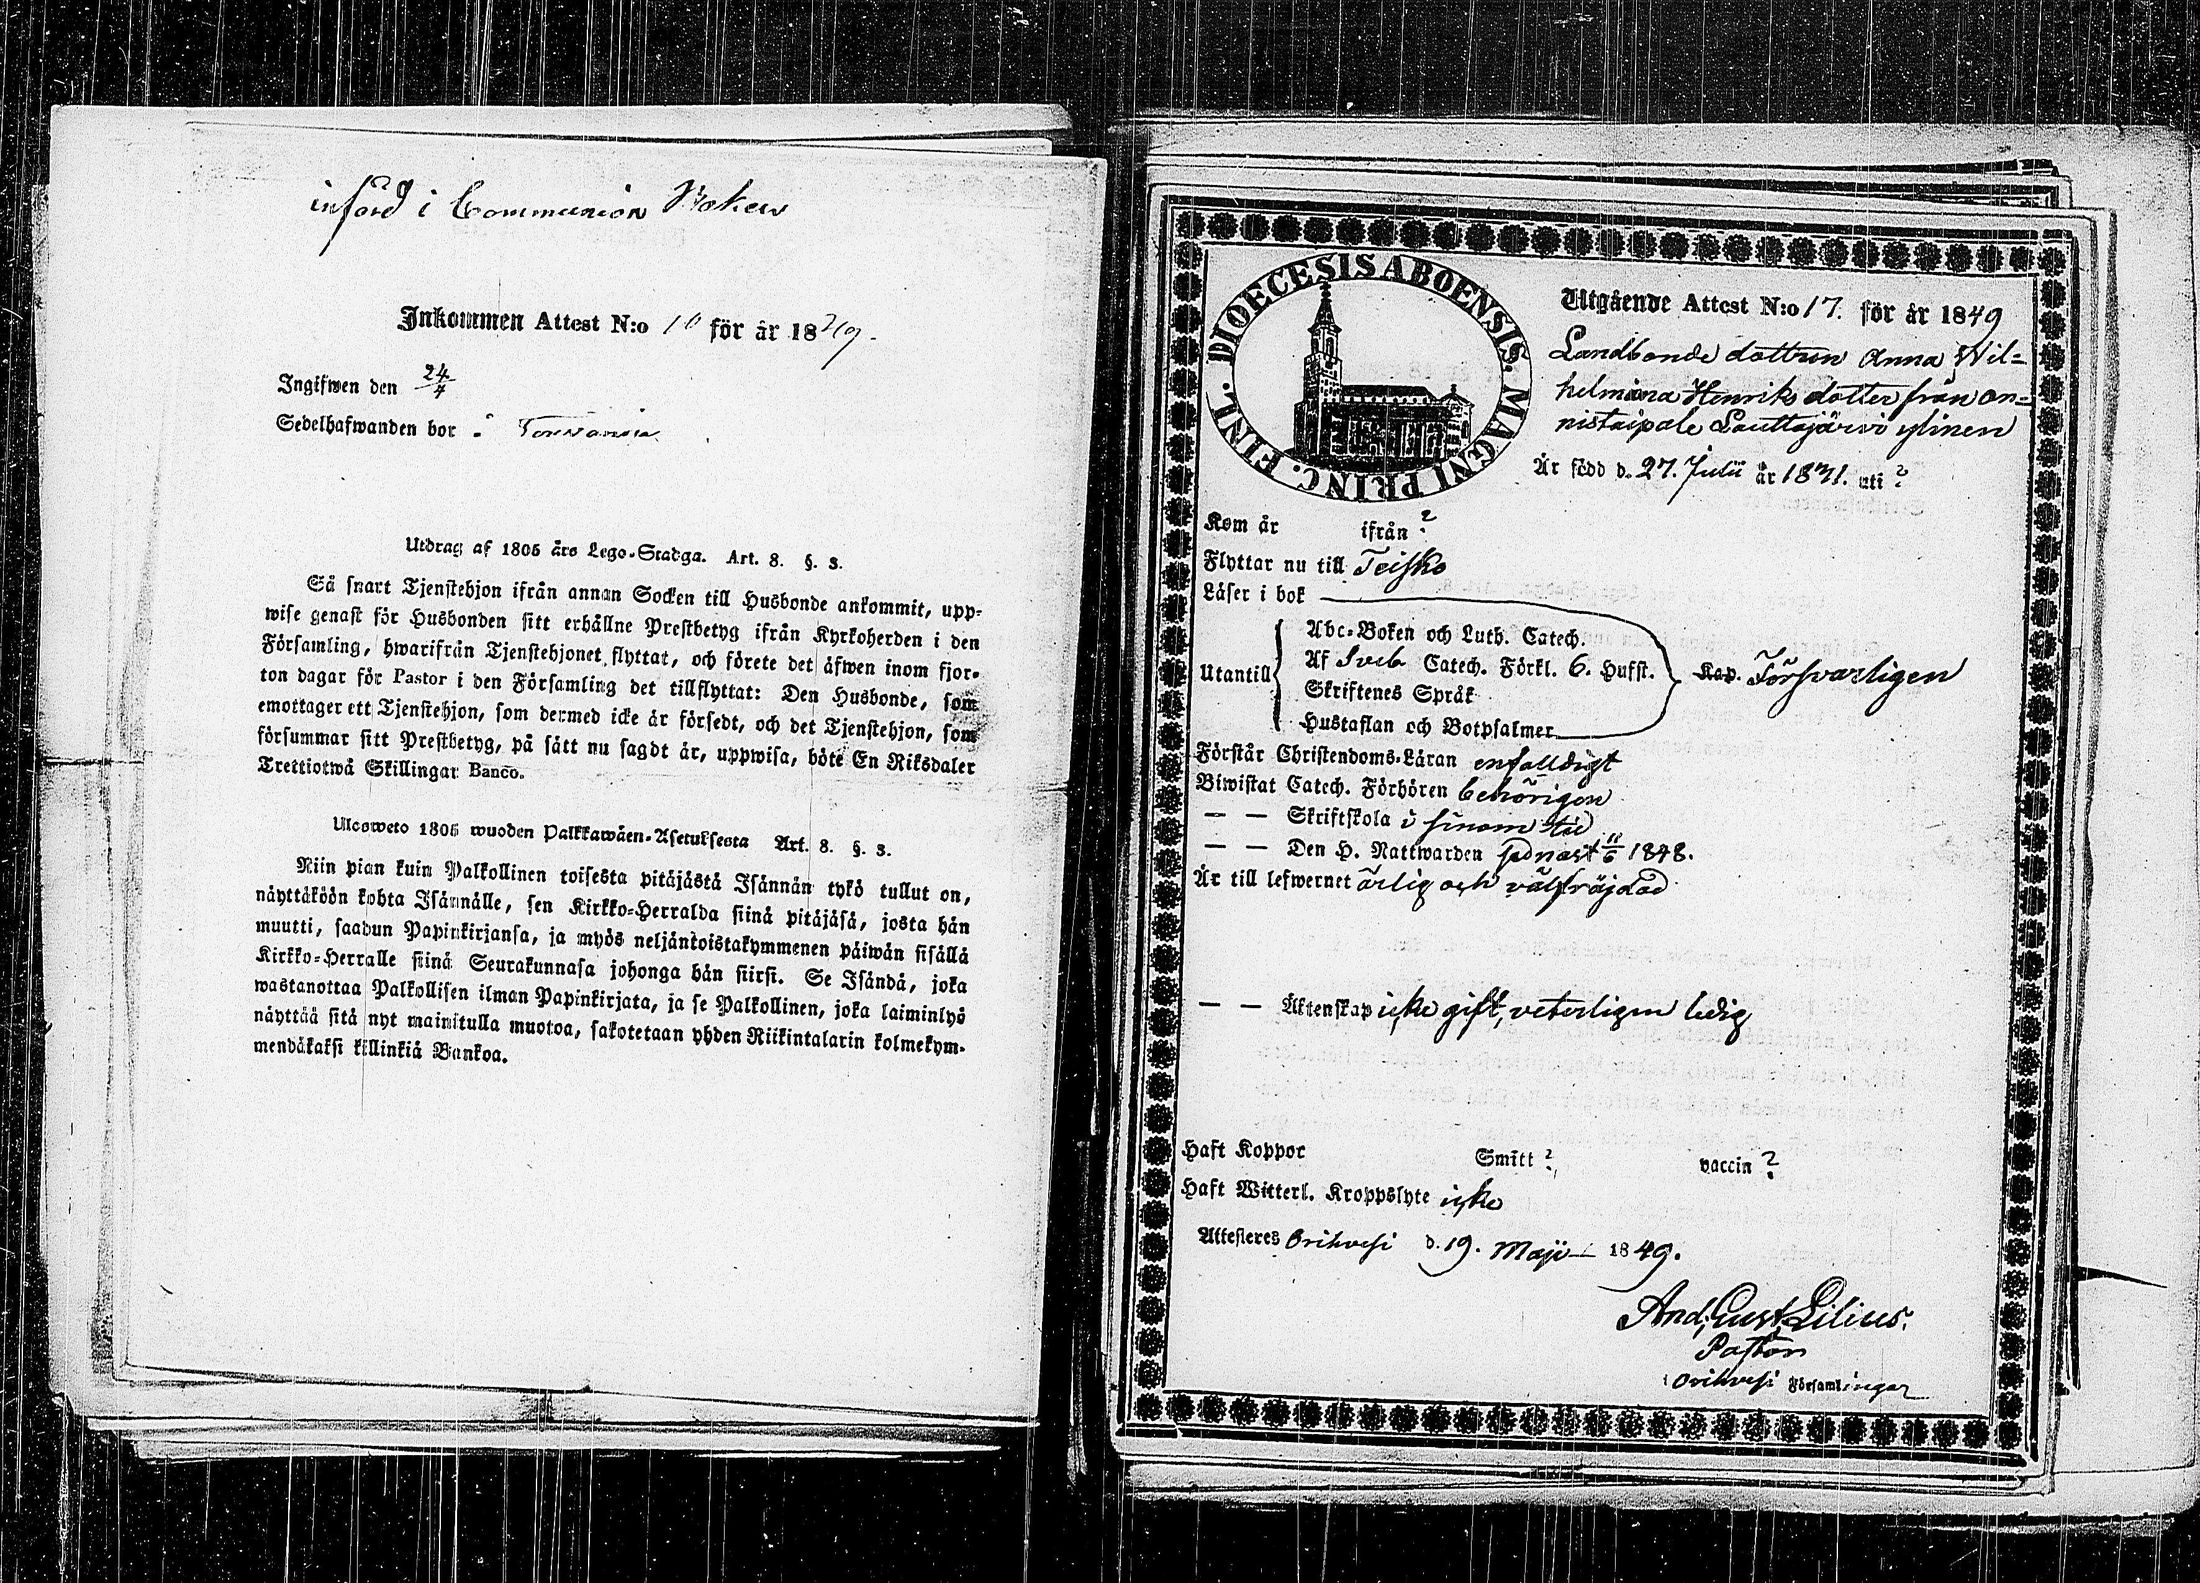 införd i Communion Boken
Inkommen Attest N:o 10 för år 1849.
Ingifwen den 24/4
Sedelhafwanden bor i
Utdrag af 1805 års Lego-Stadga. Art. 8. §. 3.
Så snart Tjenstehjon ifrån annan Socken till Husbonde ankommit, upp-
wise genast för Husbonden sitt erhållne Prestbetyg ifrån Kyrkoherden i den
Församling, hwarifrån Tjenstehjonet flyttat, och förete det äfwen inom fjor-
ton dagar för Pastor i den Församling det tillflyttat: Den Husbonde, som
emottager ett Tjenstehjon, som dermed icke är försedt, och det Tjenstehjon, som
försummar sitt Prestbetyg, på sätt nu sagdt är, uppwisa, böte En Riksdaler
Trettiotwå Skillingar Banco.
Ulosweto 1805 wuoden Palkkawäen-Asetuksesta Art. 8. §. 3.
Niin pian kuin Palkollinen toisesta pitäjästä Isännän tykö tullut on,
näyttäköön kohta Isännälle, sen Kirkko-Herralda siinä pitäjäsä, josta hän
muutti, saadun Papinkirjansa, ja myös neljäntoistakymmenen päiwän sisällä
Kirkko-Herralle siinä Seurakunnasa johonga hän siirsi. Se Isändä, joka
wastanottaa Palkollisen ilman Papinkirjata, ja se Palkollinen, joka laiminlyö
näyttää sitä nyt mainitulla muotoa, sakotetaan yhden Riikintalarin kolmekym-
mendäkaksi killinkiä Bankoa.
DIOECESIS ABOENSIS. MAGNI PRINC. FINL.
Utgående Attest N:o 17. för år 1849
Landbonde dottren Anna Wil=
helmina Henriksdotter från On=
nistaipale Lauttajärwi ylinen
Är född d. 27. Julii år 1831. uti ?
Kom år ifrån ?
Flyttar nu till Teisko
Läser i bok
Utantill
Abc-Boken och Luth. Catech.
Af Sveb Catech. Förkl. 6. Hufst.
Skriftenes Språk
Hustaflan och Botpsalmer
Kap. Försvarligen
Förstår Christendoms-Läran enfaldigt
Biwistat Catech. Förhören behörigen
— — Skriftskola i sinom tid
— — Den H. Nattwarden sednast 11/6 1848.
Är till lefwernet ärlig och välfräjdad
— — Äktenskap icke gift, veterligen ledig
Haft Koppor Smitt ? vaccin ?
Haft Witterl. Kroppslyte icke
Attesteres Orihvesi d. 19. Maji 1849.
And. Gust. Lilius.
Pastor
i Orihvesi Församlingar